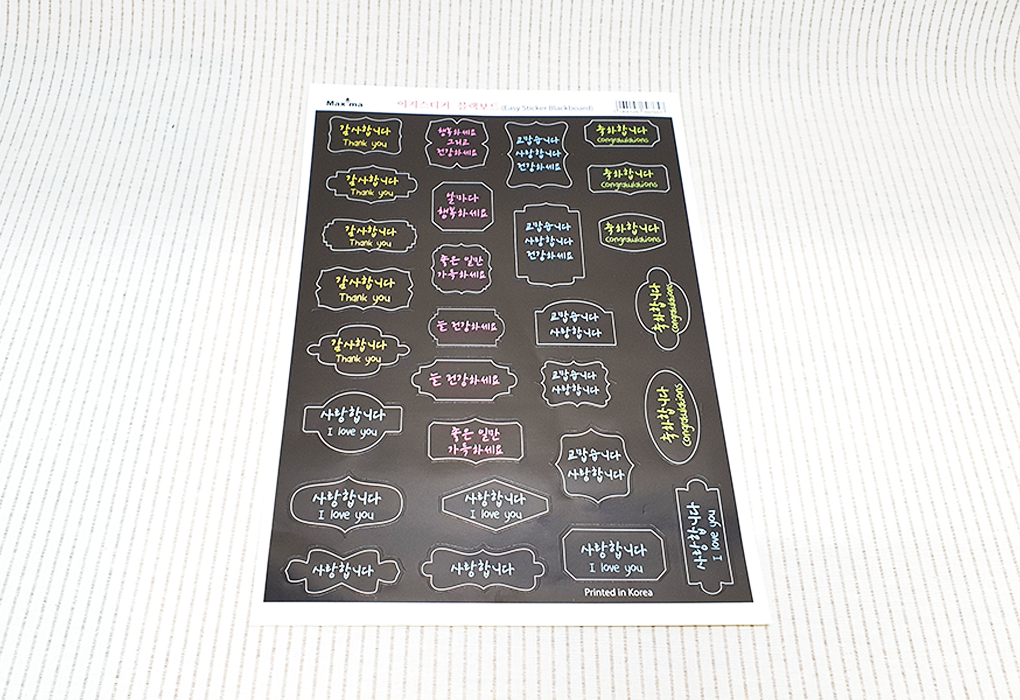 Maxima 이지스티커 블랙보드 (Easy Sticker Blackboard)
감사합니다
Thank you
감사합니다
Thank you
감사합니다
Thank you
감사합니다
Thank you
감사합니다
Thank you
사랑합니다
I love you
사랑합니다
I love you
사랑합니다
행복하세요
그리고
건강하세요
날마다
행복하세요
좋은 일만
가득하세요
늘 건강하세요
늘 건강하세요
좋은 일만
가득하세요
사랑합니다
I love you
사랑합니다
고맙습니다
사랑합니다
건강하세요
고맙습니다
사랑합니다
건강하세요
고맙습니다
사랑합니다
고맙습니다
사랑합니다
고맙습니다
사랑합니다
사랑합니다
I love you
축하합니다
congratulations
축하합니다
congratulations
축하합니다
congratulations
축하합니다
congratulations
축하합니다
congratulations
사랑합니다
I love you
Printed in Korea